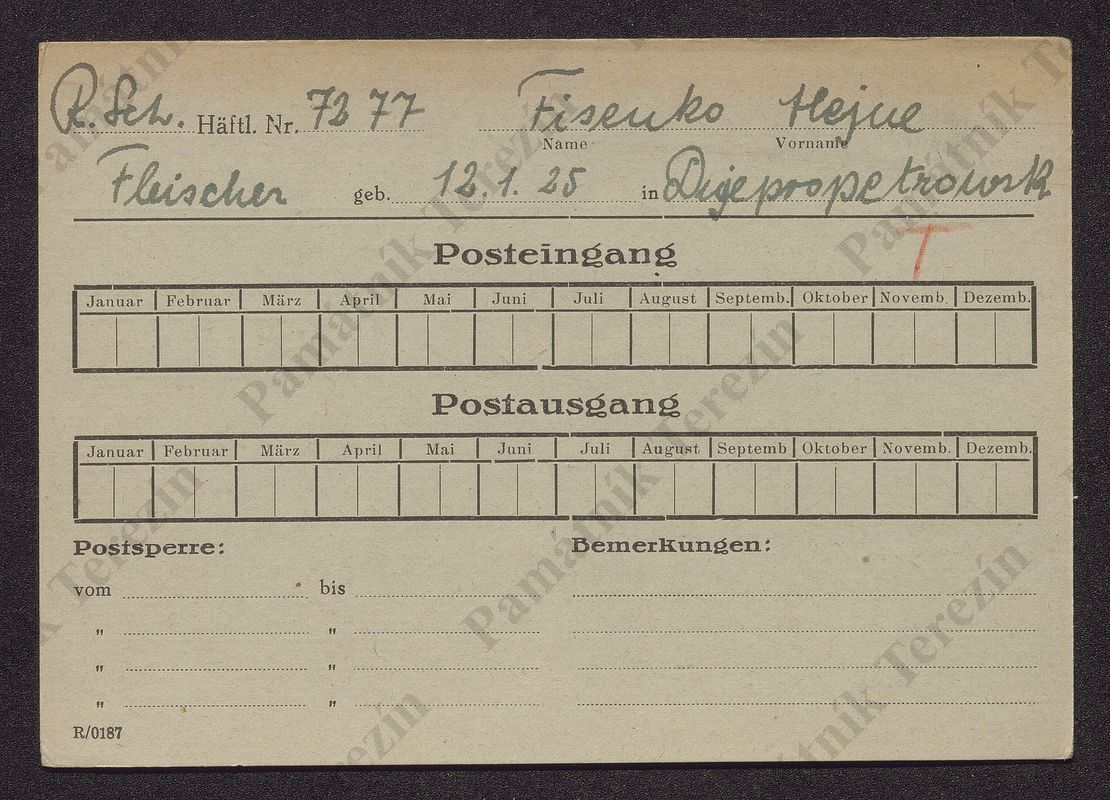 R. Sch. Häftl. Nr. 7277 Fisenko Hejne
Name Vorname
Fleischer geb. 12. 1. 25 in Dnjepropetrowsk
T
Posteingang
Januar Februar März April Mai Juni Juli August Septemb. Oktober Novemb. Dezemb.
Postausgang
Januar Februar März April Mai Juni Juli August Septemb Oktober Novemb. Dezemb.
Postsperre: Bemerkungen:
vom bis
" "
" "
" "
R/0187
Památník Terezín